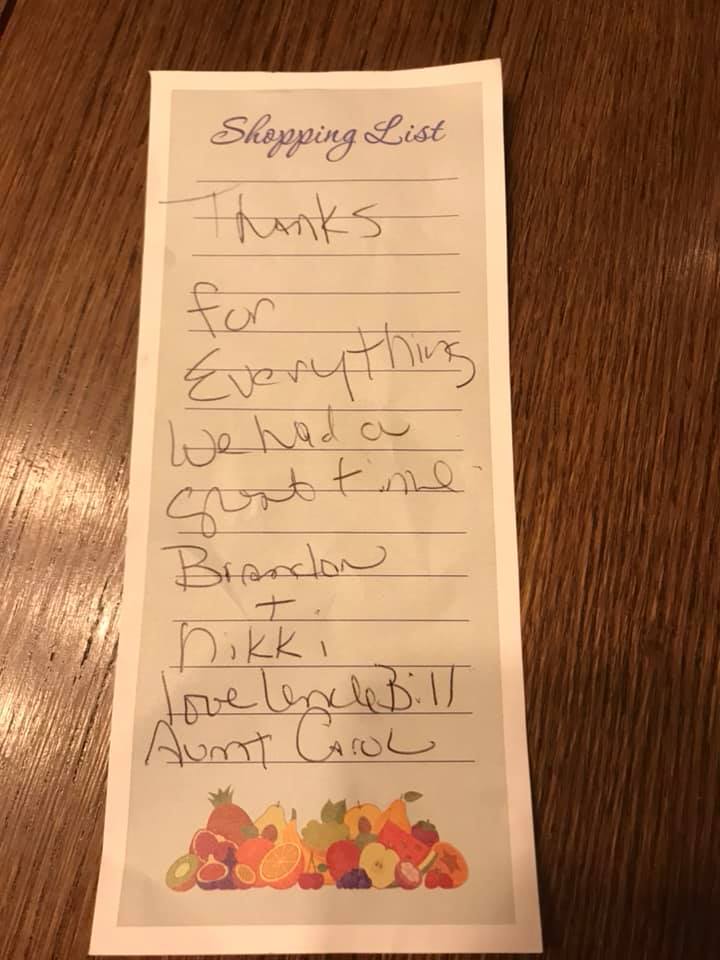 Shopping List
Thanks
for
Everything
We had a
great time
Brandon
+
Nikki
love Uncle Bill
Aunt Carol